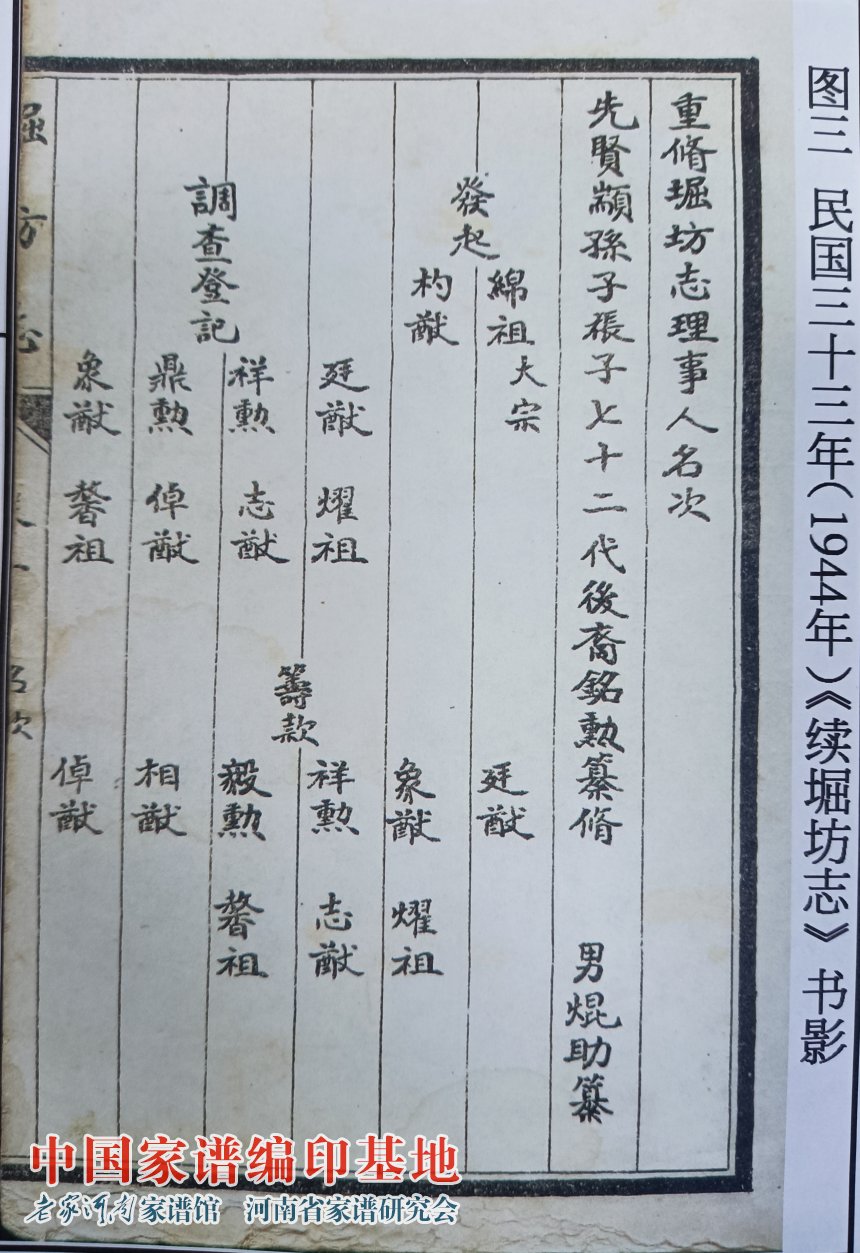 图三 民国三十三年(1944年)《续堀坊志》书影
重脩堀坊志理事人名次
先賢顓孫子張子七十二代後裔銘勲纂脩 男焜助纂
發起
綿祖大宗
杓猷
調查登記
廷猷 耀祖
祥勲 志猷
鼎勲 倬猷
象猷 馨祖
籌款
廷猷
象猷 耀祖
祥勲 志猷
毅勲 馨祖
相猷
倬猷
堀坊志
名次
中国家谱编印基地
老家河南家谱馆 河南省家谱研究会